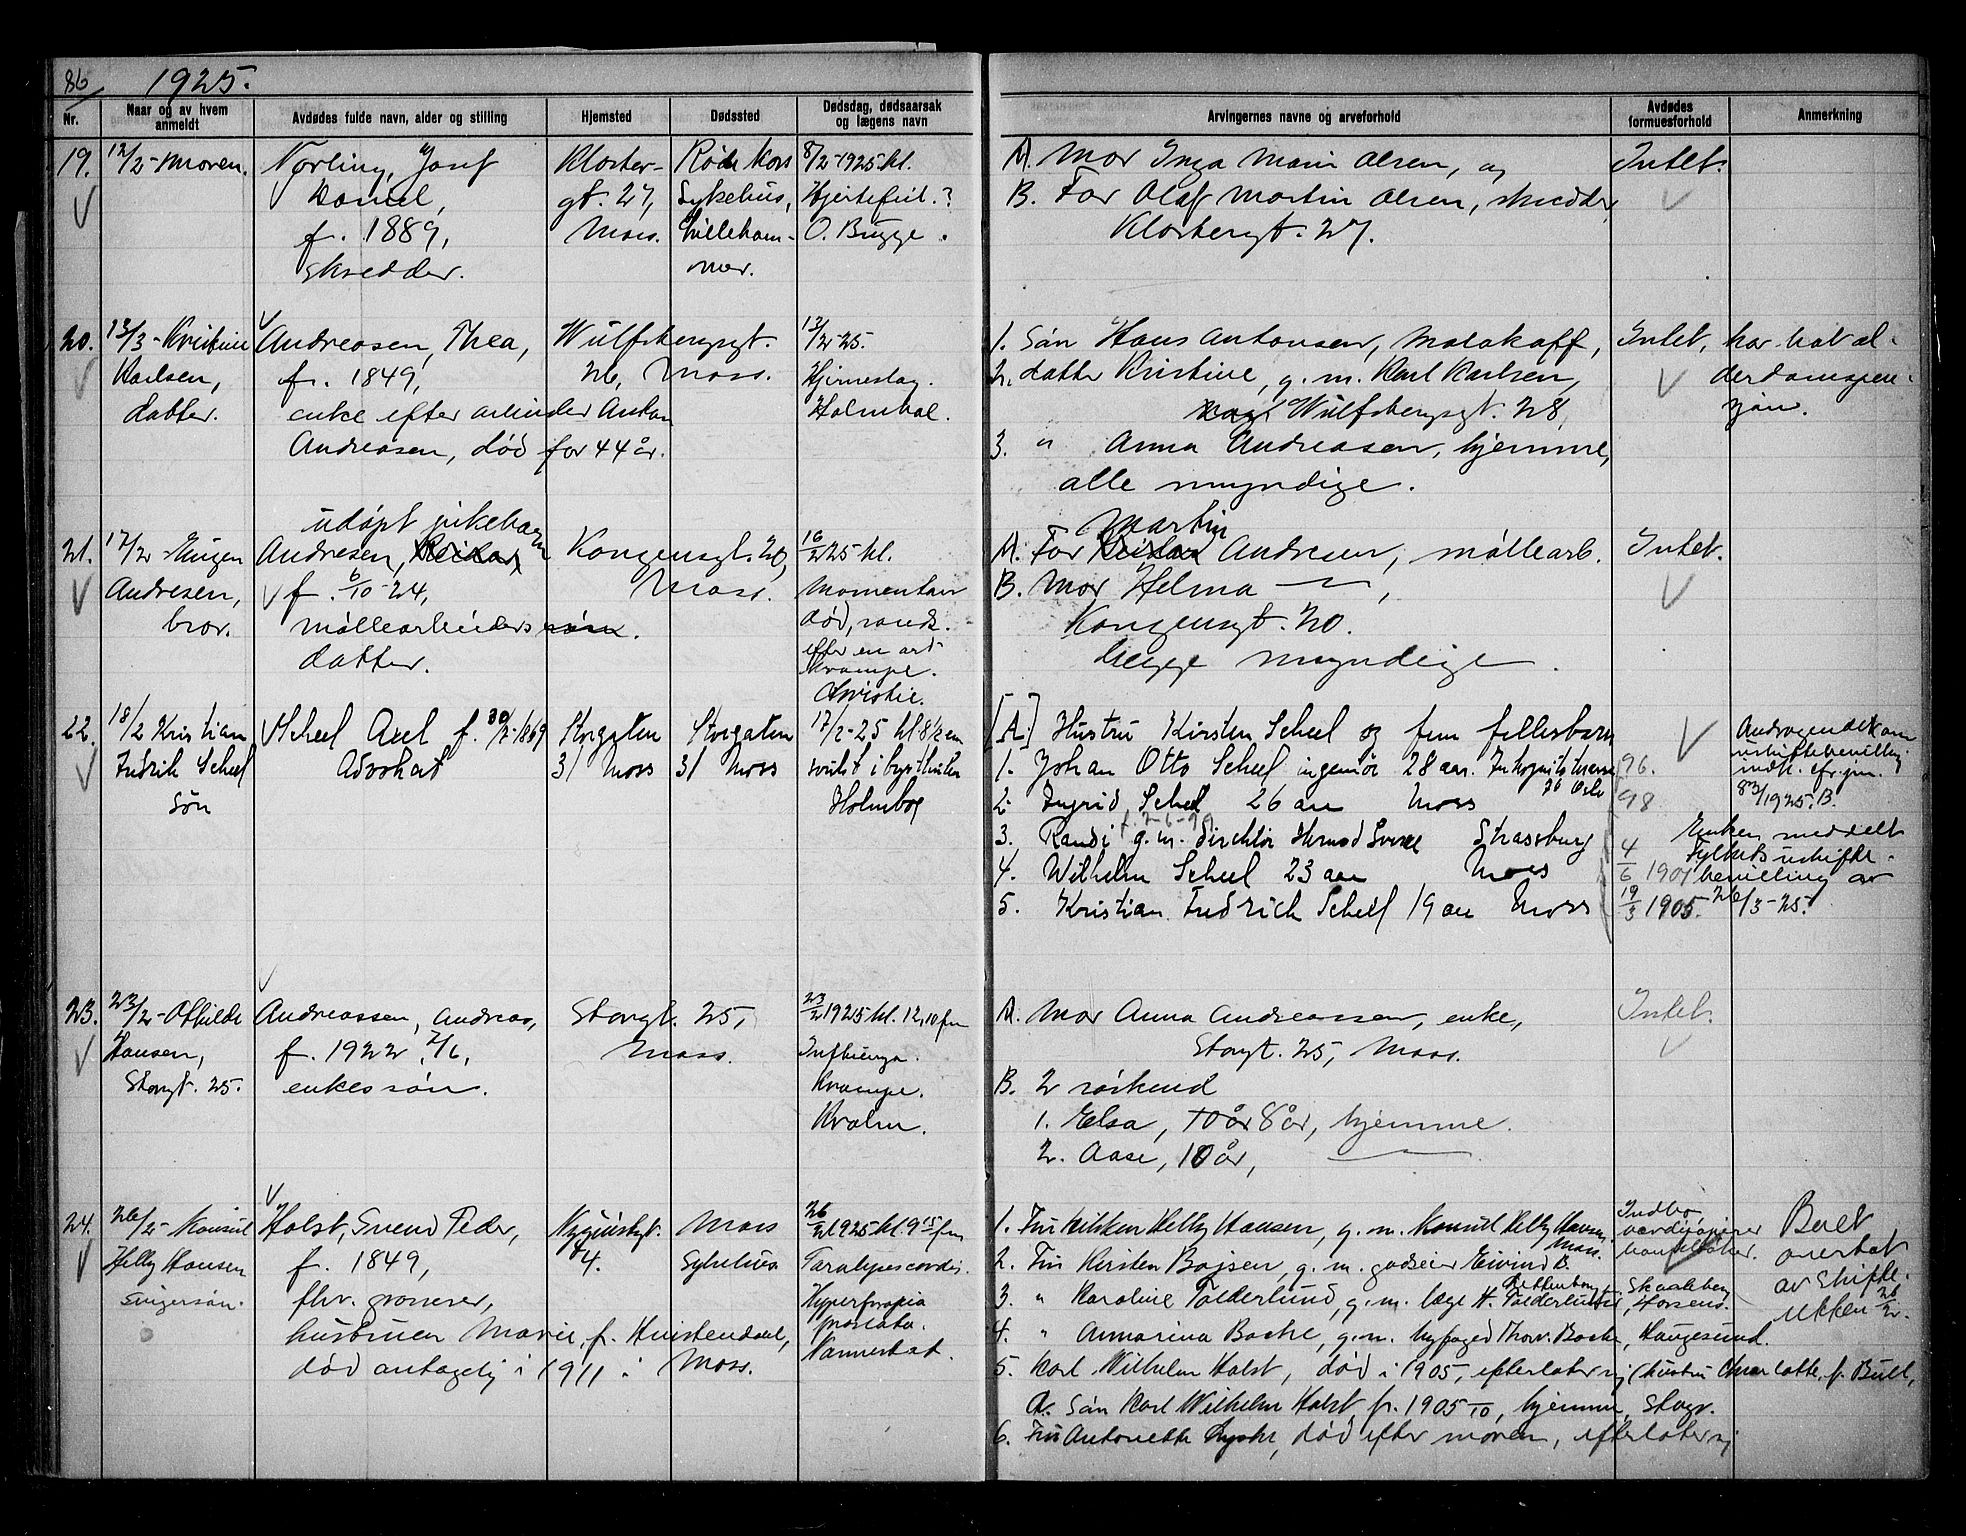 86
1925.
Nr.
Naar og av hvem anmeldt
Avdødes fulde navn, alder og stilling
Hjemsted
Dødssted
Dødsdag, dødsaarsak og lægens navn
Arvingernes navne og arveforhold
Avdødes formuesforhold
Anmerkning
19.
12/2 - moren.
Nørling, Josef
Daniel,
f. 1889,
skredder.
Kloster-
gt. 27,
Moss.
Røde Kors
Sykehus,
Lilleham-
mer.
8/2-1925 kl.
Hjertefeil.?
O. Bugge.
A. Mor Inga Marie Olsen, og
B. Far Olaf Martin Olsen, skredder,
Klostergt. 27.
Intet.
20.
13/3 - Kristine
Karlsen,
datter.
Andreasen, Thea,
f. 1849,
enke efter arbeider Anton
Andreasen, død for 44 år.
Wulfsbergsgt.
26, Moss.
13/2 25.
Hjerneslag.
Holmboe.
1. Søn Hans Antonsen, Malakoff,
2. datter Kristine, g.m. Karl Karlsen,
Wulfsbergsgt. 28,
3. " Anna Andreasen, hjemme,
alle myndige.
Intet,
har hat al-
derdomspen-
sjon.
21.
17/2 - Eugen
Andresen,
bror.
udøpt pikebarn
Andresen, Reidar,
f. 6/10-24,
møllearbeiders søn.
datter.
Kongensgt. 20,
Moss.
16/2 25 kl.
Momentan
død, sands.
efter en art
krampe.
Christie.
Martin
A. Far Reidar Andresen, møllearb.
B. Mor Helma —,
Kongensgt. 20.
begge myndige.
Intet.
22.
18/2 Kristian
Fredrik Scheel
søn
Scheel Axel f. 30/7-1869
Advokat
Storgaten
31 Moss
Storgaten
31 Moss
17/2-25 kl 8½ em
svulst i brysthulen
Holmboe
[A.] Hustru Kirsten Scheel og fem fellesbarn
1. Johan Otto Scheel ingeniør 28 aar. Inkognito terrasse
26 Oslo
96.
2. Ingrid Scheel 26 aar Moss
98
f. 2-6-99
3. Randi g.m. direktør Hermod Strassburg
4. Wilhelm Scheel 23 aar Moss
4/6 1901
5. Kristian Fredrich Scheel 19 aar Moss
19/3 1905.
Andragende om
uskiftebevilling
indk. cfr. jnr.
83/1925. B.
Enken meddelt
Fylkets uskifte-
bevilling av
26/3-25.
23.
23/2 - Othilde
Hansen,
Storgt. 25.
Andreassen, Andreas,
f. 1922 2/6,
enkes søn.
Storgt. 25,
Moss.
23/2 1925 kl. 12,10 fm
Influenza.
Krampe.
Kvalm.
A. Mor Anna Andreassen, enke,
Storgt. 25, Moss.
B. 2 søskend
1. Elsa, 10 år 8 år, hjemme.
2. Aase, 10 år, —
Intet.
24.
26/2 - Konsul
Helly Hansen
svigersøn.
Holst, Svend Peder,
f. 1849,
fhv. grosserer,
hustruen Marie, f. Hvistendahl,
død antagelig i 1911 i Moss.
4.
Moss
Sykehus
26/2 1925 kl 9 15 fm
Paralyse cordis.
Hyperthropia
prostata.
Vannestad.
1. Fru Kikken Helly Hansen, g.m. Konsul Helly Hansen,
Moss.
2. Fru Kirsten Bojsen, g.m. godseier Eivind B.
3. " Karoline Tolderlund, g.m. læge H. Tolderlund, Horsens.
4. " Annarina Bache, g.m. byfoged Thorv. Bache, Haugesund.
5. Karl Wilhelm Holst, død i 1905, efterlater sig (hustru Charlotte f. Bull,
a. Søn Karl Wilhelm Holst, f. 1905 /10, hjemme, Storgt.
6. Fru Antonette, død efter moren, efterlater sig
Indbo,
verdipapirer
bankbøker.
Boet
overtat
av skifte-
retten 26/2.